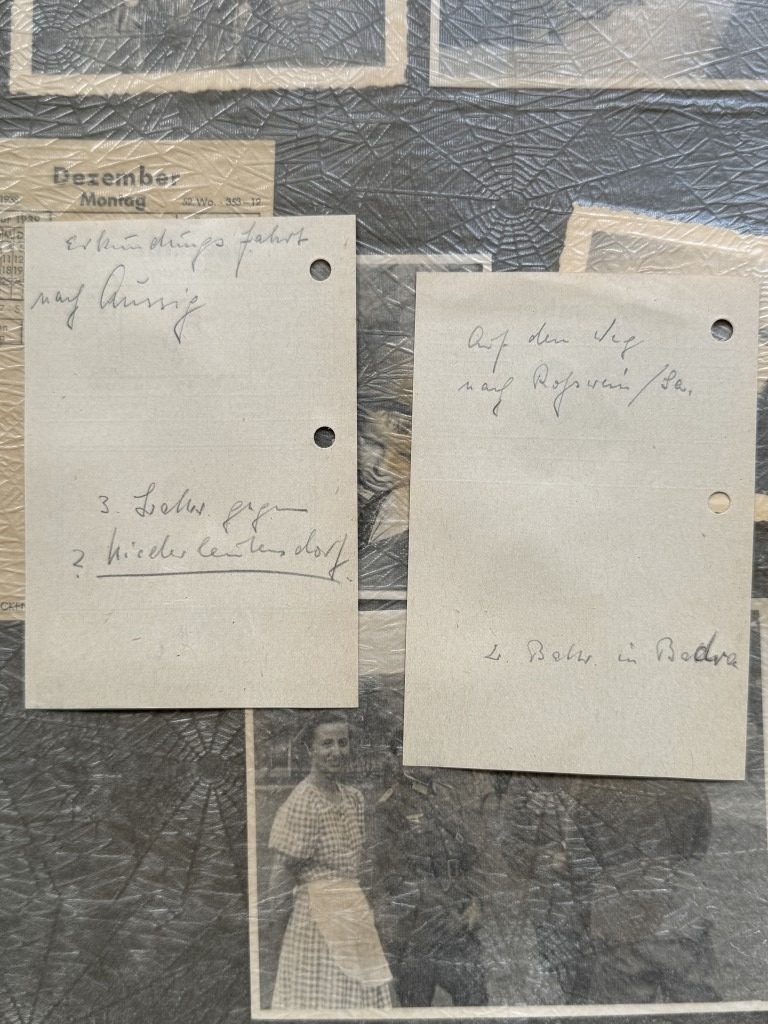 Dezember
Montag
52 Wo. 353-12
Erkundungsfahrt
nach Aussig
3. gegen
? Niederleutensdorf
Auf dem Weg
nach Roßwein/Sa.
in Badra